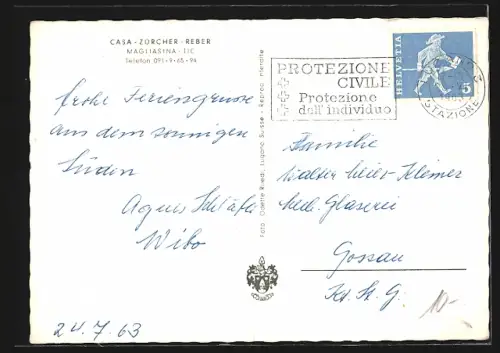 CASA - ZÜRCHER - REBER
MAGLIASINA - TIC
Telefon 091 - 9 - 65 - 94
frohe Feriengrüsse
aus dem sonnigen
Süden
Agnes
Wibo
24.7.63
Foto Odette Riedi, Lugano Suisse - Reprod. interdite
PROTEZIONE
CIVILE
Protezione
dell'individuo
HELVETIA
5
STAZIONE
Familie
Walter
mech. Glaserei
Gossau
Kt. St. G.
10-